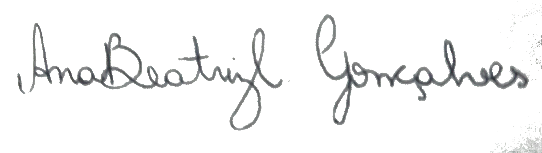 Ana Beatriz Gonçalves